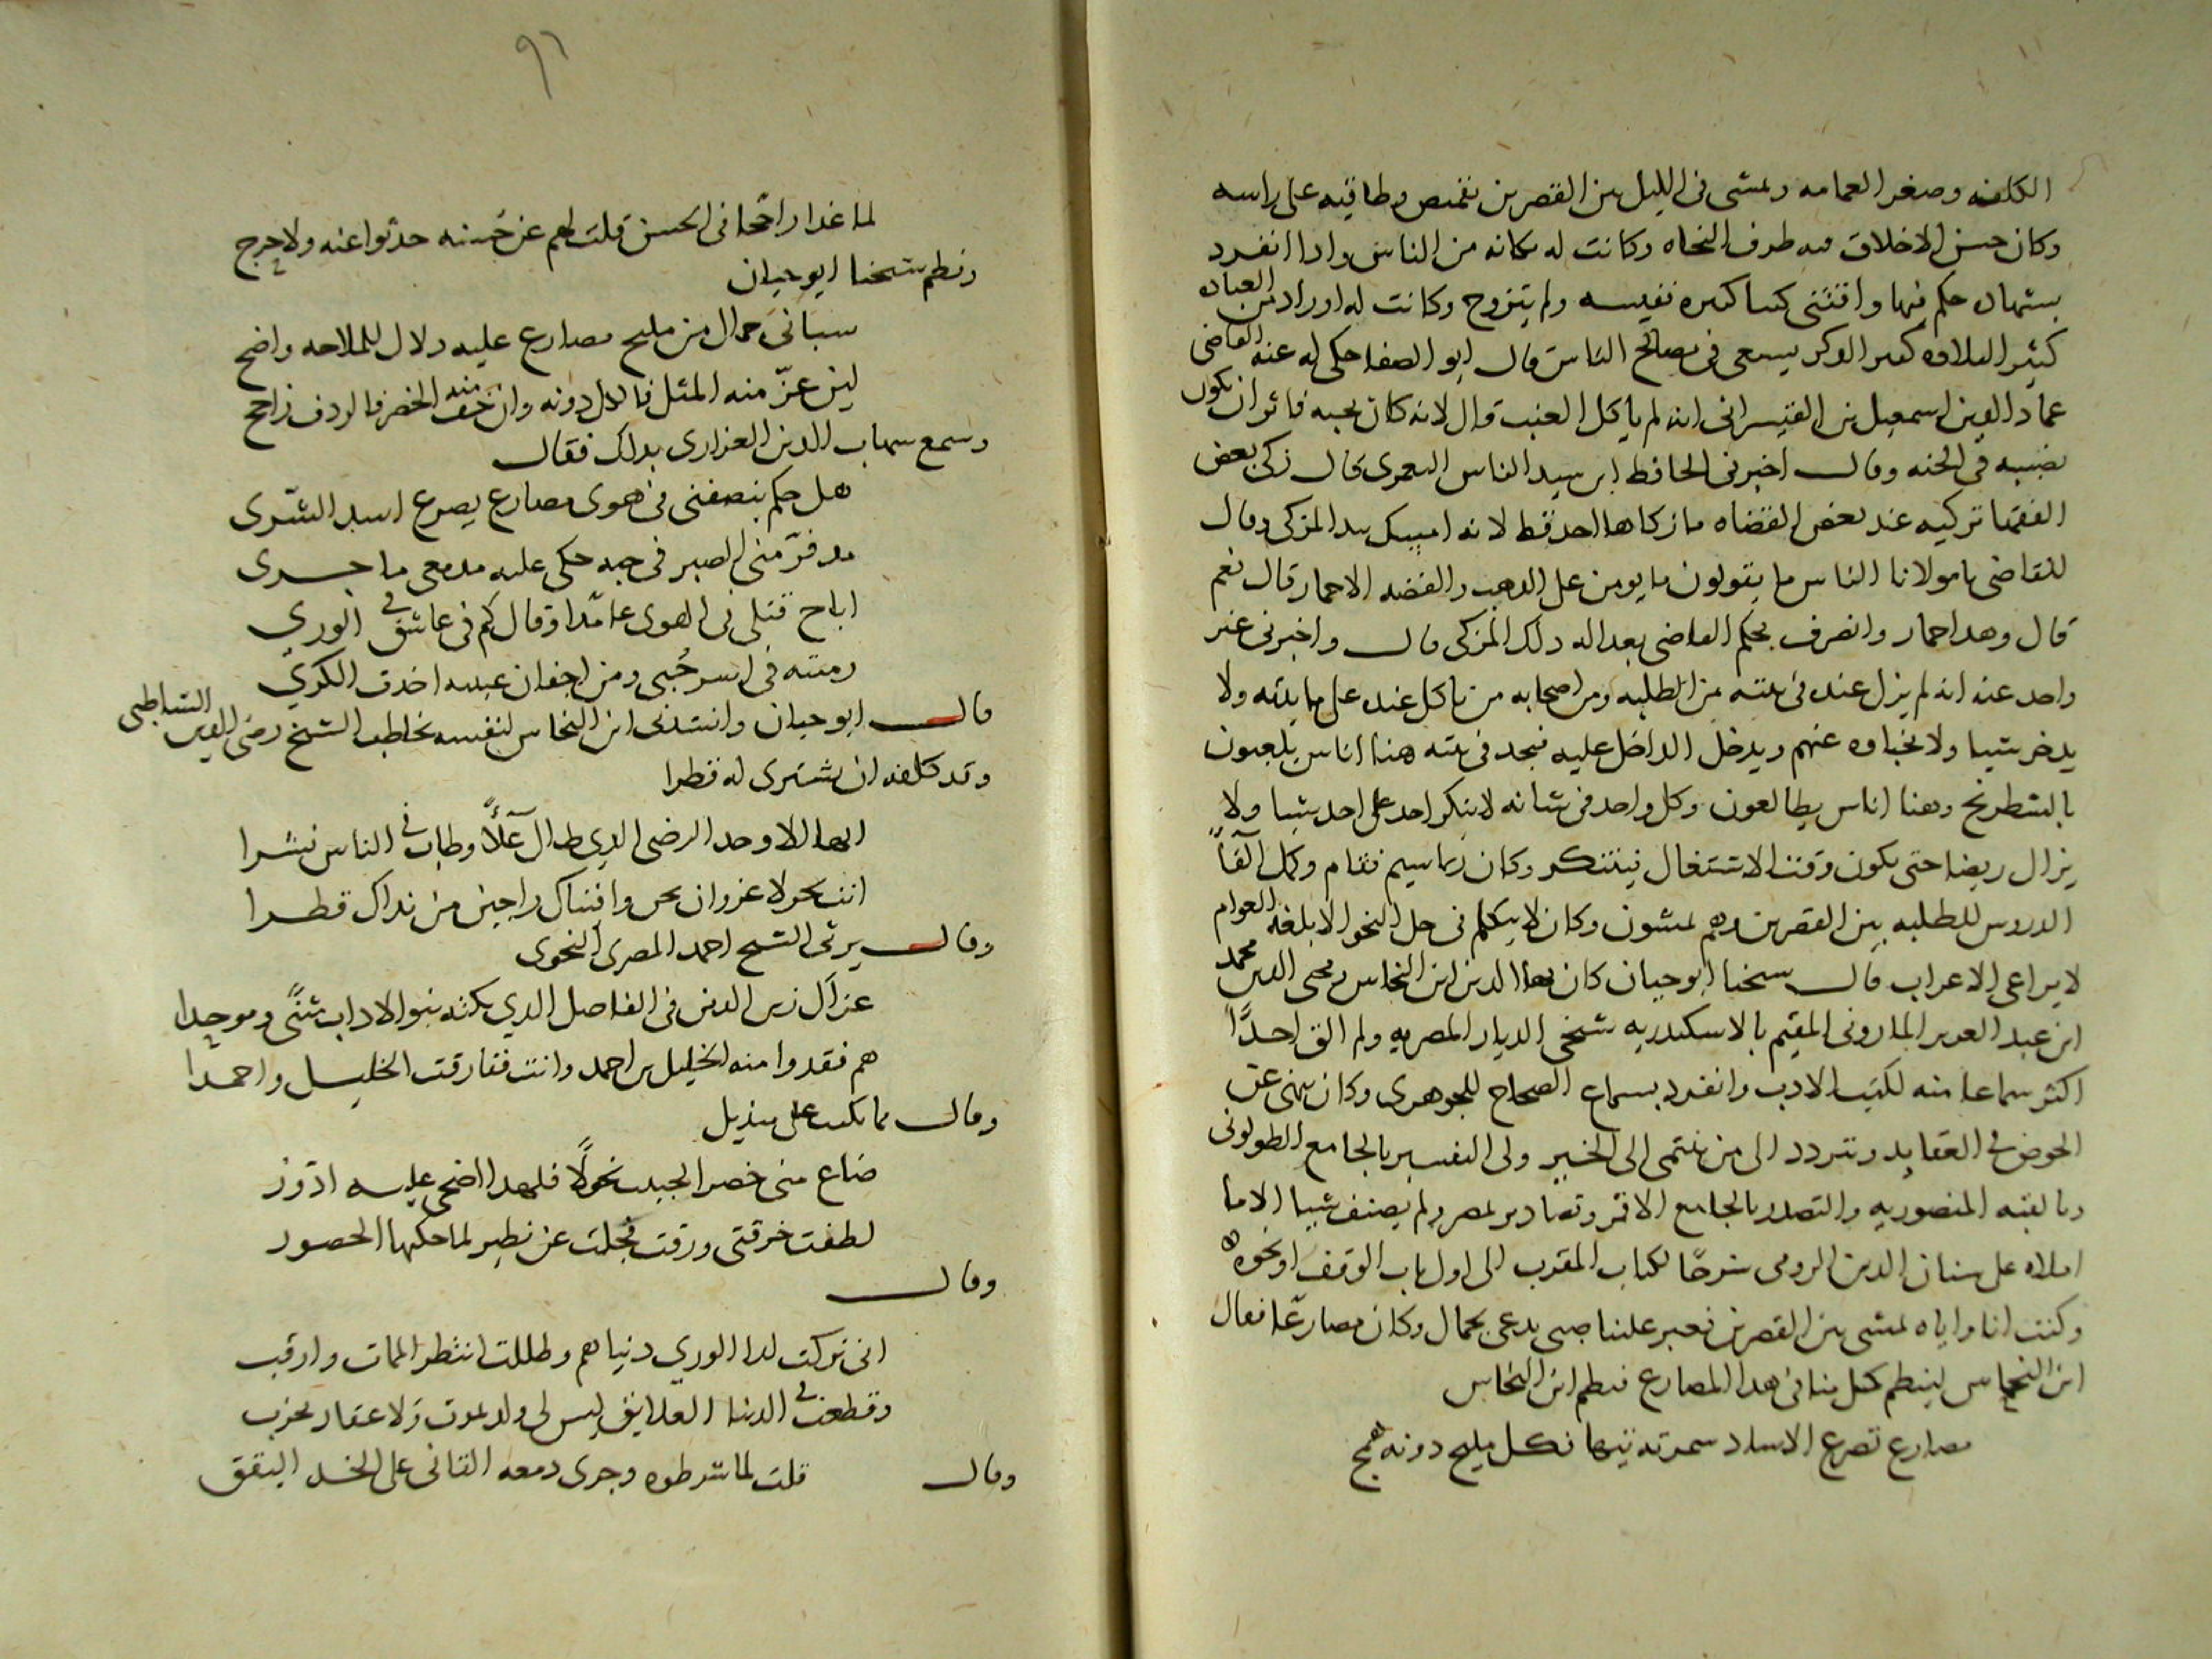 الكلفه وصغر العمامه ويمشى فى الليل بين القصرين بقميص وطاقيه على راسه
وكان حسن الاخلاق فيه ظرف النحاه وكانت له مكانه من الناس واذا انفرد
بشهاده حكم فيها واقتنى كتبا كثيره نفيسه ولم يتزوج وكانت له اوراد من العباده
كثير التلاوه كثير الذكر يسعى فى مصالح الناس قال ابو الصفا حكى له عنه القاضى
عماد الدين اسمعيل بن القيسرانى انه لم ياكل العنب قال لانه كان يحبه فاثر ان يكون
نصيبه فى الجنه وقال اخبرنى الحافظ ابن سيد الناس اليعمرى قال زكى بعض
الفقها تزكيه عند بعض القضاه ما زكاها احد قط لانه امسك بيد المزكى وقال
للقاضى يا مولانا الناس ما يقولون ما يومن على الذهب والفضه الا حمار قال نعم
قال وهذا حمار وانصرف بحكم القاضى بعداله ذلك المزكى قال واخبرنى غير
واحد عنه انه لم يزل عنده فى بيته من الطلبه ومن اصحابه من ياكل عنده على مايدته ولا
يدخر شيا ولا يخباه عنهم ويدخل الداخل عليه فيجد فى بيته هنا اناس يلعبون
بالشطرنج وهنا اناس يطالعون وكل واحد فى شانه لا ينكر احد على احد شيا ولا
يزال ريضا حتى يكون وقت الاشتغال فيتنكر وكان
الدروس للطلبه بين القصرين وهم يمشون وكان لا يتكلم فى حل النحو الا بلغه العوام
لا يراعى الاعراب قال شيخنا ابو حيان كان بها الدين ابن النحاس ومحيى الدين محمد
ابن عبد العزيز المازونى المقيم بالاسكندريه شيخى الديار المصريه ولم الق احدًا
اكثر سماعا منه لكتب الادب وانفرد بسماع الصحاح للجوهرى وكان ينهى عن
الخوض فى العقايد ويتردد الى من ينتمى الى الخير ولى التفسير بالجامع الطولونى
وبالقبه المنصوريه والتصدر بالجامع الاقمر وتصادير بمصر ولم يصنف شيا الا ما
املاه على سنان الدين الرومى شرحًا لكتاب المقرب الى اول باب الوقف او نحوه
وكنت انا واياه نمشى بين القصرين فعبر علينا صبى يدعى بجمال وكان مصارعًا فقال
ابن النحاس لينظم كل منا فى هذا المصارع فنظم ابن النحاس
مصارع تصرع الاساد سمرته تيها فكل مليح دونه همج
٩٦
لما غدا راجحا فى الحسن قلت لهم عن حسنه حدثوا عنه ولا حرج
ونظم شيخنا ابو حيان
سبانى جمال من مليح مصارع عليه دلال للملاحه واضح
لين عزّ منه المثل فالكل دونه وان خف منه الخصر فالردف راجح
وسمع شهاب الدين العزازى بذلك فقال
هل حكم ينصفنى فى هوى مصارع يصرع اسد الشرى
مذ فرّ منى الصبر فى حبه حكى عليه مدمعى ما جرى
اباح قتلى فى الهوى عامدًا وقال كم لى عاشق فى الورى
رميته فى اسر حُبى ومن اجفان عينيه اخذت الكرى
قال ابو حيان وانشدنى ابن النحاس لنفسه يخاطب الشيخ رضى الدين الشاطبى
وقد كلفه ان يشترى له قطرا
ايها الاوحد الرضى الذى طال علاًّ وطاب فى الناس نشرا
انت بحر لا غرو ان نحن وافيناك راجين من نداك قطرا
وقال يرثى الشيخ احمد المصرى النحوى
عزآك زين الدين فى الفاضل الذى بكته بنو الاداب مثنًى وموحدا
هم فقدوا منه الخليل بن احمد وانت ففارقت الخليل واحمدا
وقال مما يكتب على منديل
ضاع منى خصر الحبيب نحولًا فلهذا اضحى عليه ادور
لطفت خرقتى ورقت فجلت عن نظير لما حكتها الخصور
وقال
انى تركت لذا الورى دنياهم وظللت انتظر الممات وارقب
وقطعت فى الدنيا العلايق ليس لى ولد يموت ولا عقار يخرب
وقال قلت لما شرطوه وجرى دمعه القانى على الخد اليقق